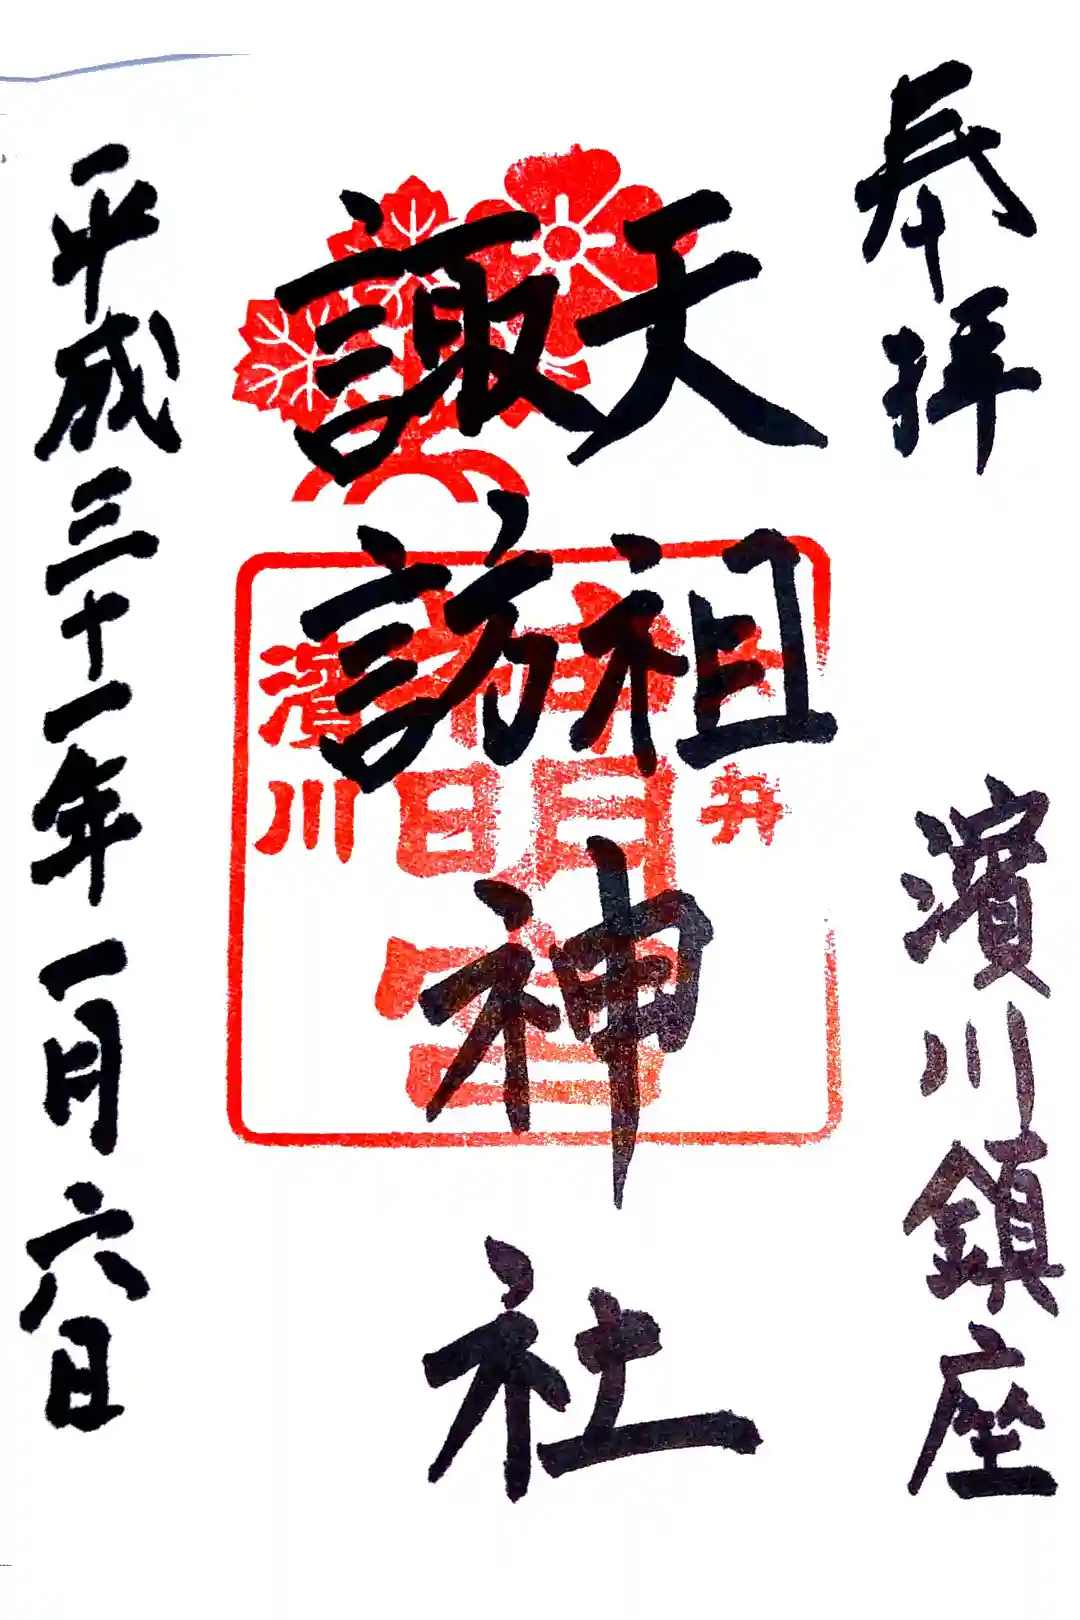 奉拝
濱川鎮座
天祖
諏訪
神社
平成三十一年一月六日
濱川